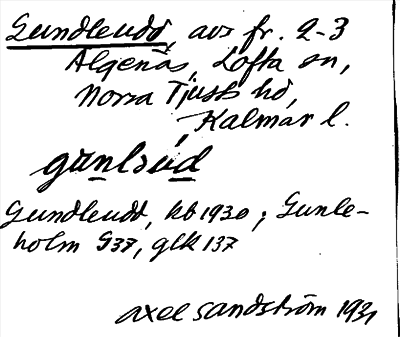 Gundleudd, avs fr. 2-3
Älgenäs, Lofta sn,
Norra Tjusts hd,
Kalmar l.
gunlsúd
Gundleudd, kb 1930; Gunle-
holm G37, glk 137
Axel Sandström 1931